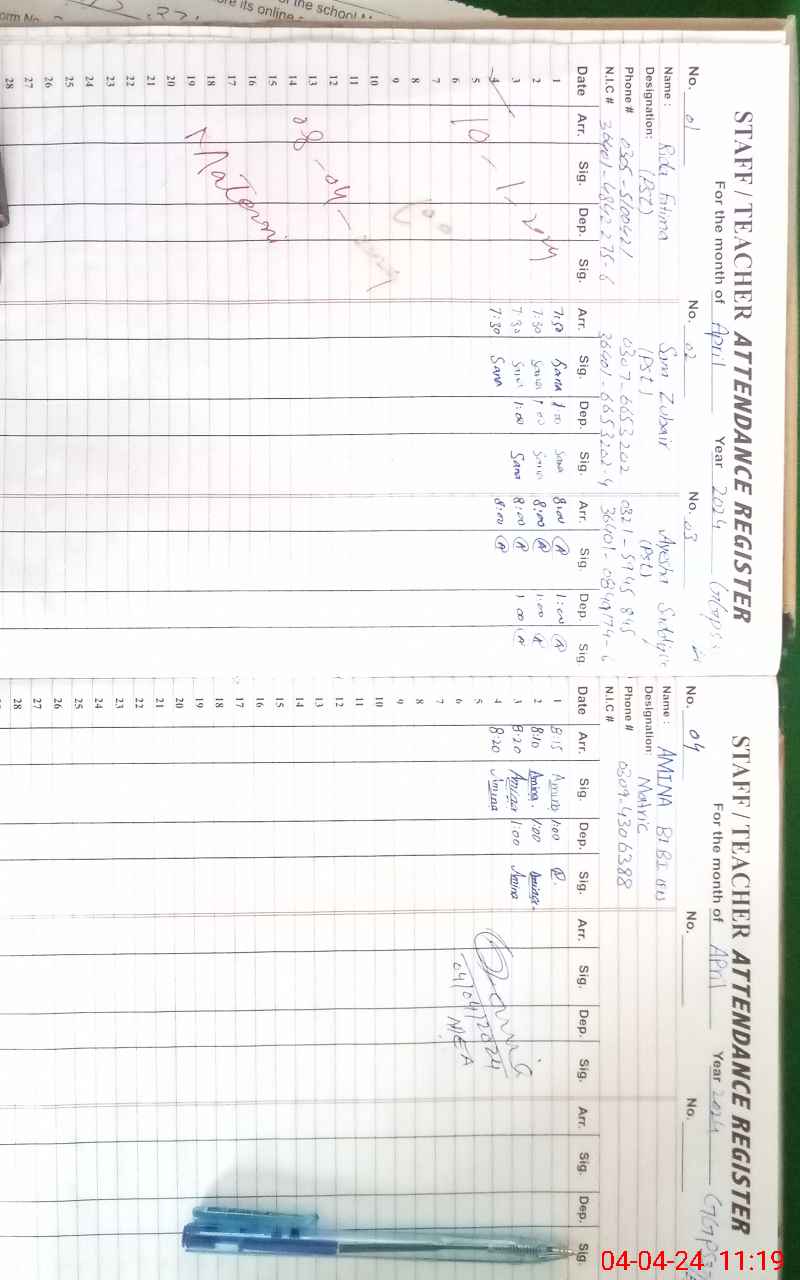 STAFF / TEACHER ATTENDANCE REGISTER
For the month of April Year 2024
No. 01 No. 02 No. 03
Name : Rida Fatima Sara Zubair Ayesha
Designation: (Pst) (Pst) (Pst)
Phone # 0305-5100421 0307-6653202 0321-5945845
N.I.C # 36401-6653202-4
Date Arr. Sig. Dep. Sig. Arr. Sig. Dep. Sig. Arr. Sig. Dep. Sig
1 7:30 Sana 1:00 Sana 8:00 A 1:00 A
2 7:30 Sana 1:00 Sana 8:00 A 1:00 A
3 7:30 Sana 1:00 Sana 8:00 A 1:00 A
4 7:30 Sana 8:00 A
5
6
7
8
9
10
11
12
13
14
15
16
17
18
19
20
21
22
23
24
25
26
27
28
10-1-2024
08-04-2024
STAFF / TEACHER ATTENDANCE REGISTER
For the month of April Year 2024
No. 04 No. No.
Name : AMINA BIBI
Designation: Matric
Phone # 0309-4306388
N.I.C #
Date Arr. Sig. Dep. Sig. Arr. Sig. Dep. Sig. Arr. Sig. Dep. Sig.
1 8:15 Amina 1:00
2 8:10 Amina. 1:00 Amina.
3 8:20 Amina 1:00 Amina
4 8:20 Amina
5
6
7
8
9
10
11
12
13
14
15
16
17
18
19
20
21
22
23
24
25
26
27
28
04/04/2024
MEA
04-04-24 11:19